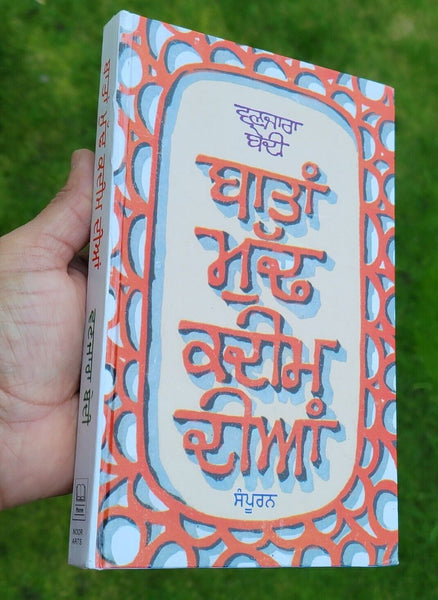 ਵਣਜਾਰਾ
ਬੇਦੀ
ਬਾਤਾਂ
ਮੁੱਢ
ਕਦੀਮ
ਦੀਆਂ
ਸੰਪੂਰਨ
ਬਾਤਾਂ ਮੁੱਢ ਕਦੀਮ ਦੀਆਂ ਵਣਜਾਰਾ ਬੇਦੀ
NOOR
ARTS